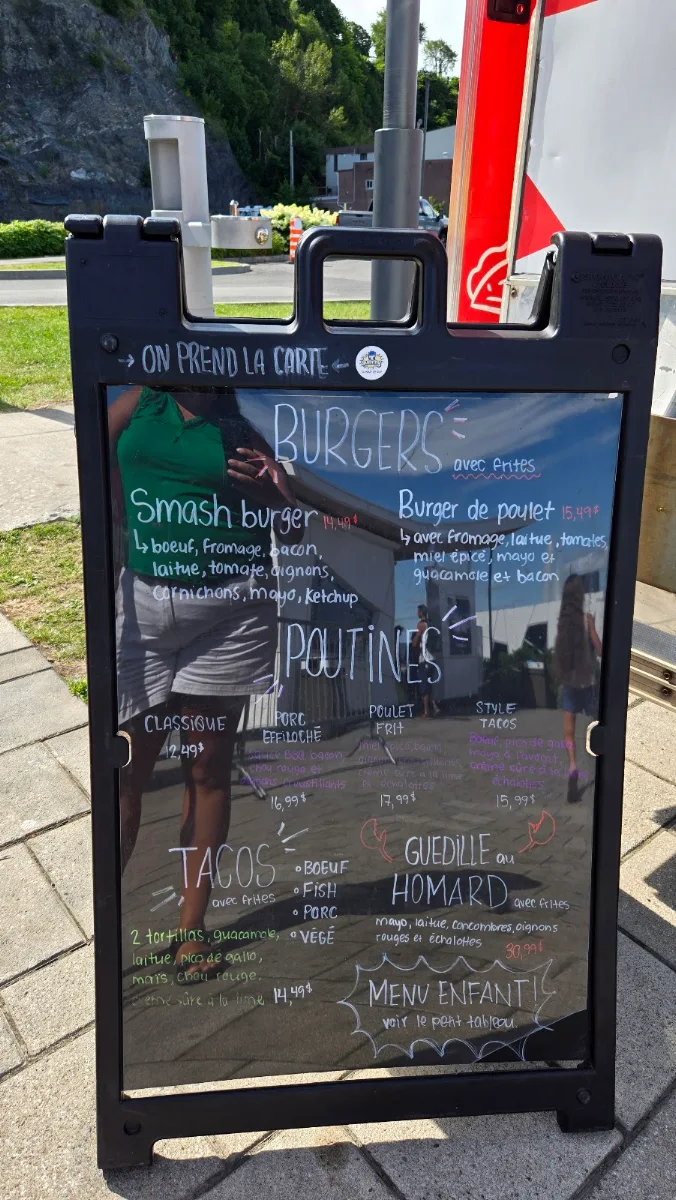 → ON PREND LA CARTE ←
BURGERS
avec frites
Smash burger 14,49$
↳ boeuf, fromage, bacon,
laitue, tomate, oignons,
cornichons, mayo, ketchup
Burger de poulet 15,49$
↳ avec fromage, laitue, tomates,
miel épicé, mayo et
guacamole et bacon
POUTINES
CLASSIQUE
12,49$
PORC
EFFILOCHÉ
bacon
chou rouge et
16,99$
POULET
FRIT
17,99$
STYLE
TACOS
Boeuf, pico de gallo
échalottes
15,99$
TACOS
avec frites
• BOEUF
• FISH
• PORC
• VÉGÉ
2 tortillas, guacamole,
laitue, pico de gallo,
maïs, chou rouge.
crème sûre à la lime 14,49$
GUEDILLE au
HOMARD avec frites
mayo, laitue, concombres, oignons
rouges et échalottes
30,99$
MENU ENFANT!
voir le petit tableau.